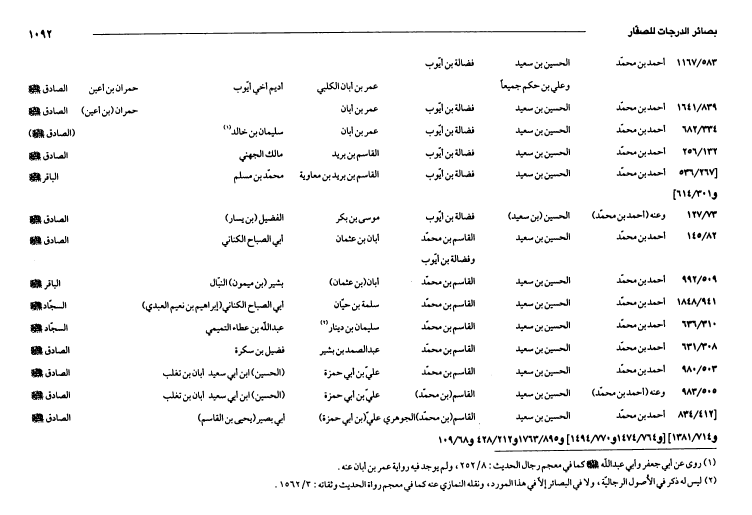 بصائر الدرجات للصفّار ١٠٩٢
١١٦٧/٥٨٣ أحمد بن محمّد الحسين بن سعيد فضالة بن أيّوب
وعلي بن حكم جميعاً عمر بن أبان الكلبي أديم أخي أيّوب حمران بن أعين الصادق ﷺ
١٦٤١/٨٣٩ أحمد بن محمّد الحسين بن سعيد فضالة بن أيّوب عمر بن أبان حمران (بن أعين) الصادق
٦٨٢/٣٣٤ أحمد بن محمّد الحسين بن سعيد فضالة بن أيّوب عمر بن أبان سليمان بن خالد(١) (الصادق)
٢٥٦/١٣٢ أحمد بن محمّد الحسين بن سعيد فضالة بن أيّوب القاسم بن بريد مالك الجهني الصادق
[٥٣٦/٢٦٧ أحمد بن محمّد الحسين بن سعيد فضالة بن أيّوب القاسم بن بريد بن معاوية محمّد بن مسلم الباقر
و٦١٤/٣٠١]
١٢٧/٧٣ وعنه (أحمد بن محمّد) الحسين (بن سعيد) فضالة بن أيّوب موسى بن بكر الفضيل (بن يسار) الصادق
١٤٥/٨٢ أحمد بن محمّد الحسين بن سعيد القاسم بن محمّد أبان بن عثمان أبي الصباح الكناني الصادق
وفضالة بن أيّوب
٩٩٢/٥٠٩ أحمد بن محمّد الحسين بن سعيد القاسم بن محمّد أبان (بن عثمان) بشير (بن ميمون) النبّال الباقر
١٨٤٨/٩٤١ أحمد بن محمّد الحسين بن سعيد القاسم بن محمّد سلمة بن حيّان أبي الصباح الكناني (إبراهيم بن نعيم العبدي) السجّاد
٦٣٦/٣١٠ أحمد بن محمّد الحسين بن سعيد القاسم بن محمّد سليمان بن دينار(٢) عبدالله بن عطاء التميمي السجّاد
٦٣١/٣٠٨ أحمد بن محمّد الحسين بن سعيد القاسم بن محمّد عبدالصمد بن بشير فضيل بن سكرة الصادق
٩٨٠/٥٠٣ أحمد بن محمّد الحسين بن سعيد القاسم بن محمّد عليّ بن أبي حمزة (الحسين) ابن أبي سعيد أبان بن تغلب الصادق
٩٨٣/٥٠٥ وعنه (أحمد بن محمّد) الحسين بن سعيد القاسم (بن محمّد) عليّ بن أبي حمزة (الحسين) ابن أبي سعيد أبان بن تغلب الصادق
[٨٣٤/٤١٢ أحمد بن محمّد الحسين بن سعيد القاسم (بن محمّد) الجوهري عليّ (بن أبي حمزة) أبي بصير (يحيى بن القاسم) الصادق
و١٣٨١/٧١٤] [١٤٧٤/٧٦٤ و١٤٩٤/٧٧٠] و١٧٦٣/٨٩٥ و٤٢٨/٢١٢ و١٠٩/٦٨
(١) روى عن أبي جعفر وأبي عبدالله كما في معجم رجال الحديث : ٢٥٢/٨ ، ولم يوجد فيه رواية عمر بن أبان عنه .
(٢) ليس له ذكر في الأصول الرجاليّة ، ولا في البصائر إلاّ في هذا المورد ، ونقله النمازي عنه كما في معجم رواة الحديث وثقاته : ١٥٦٢/٣ .